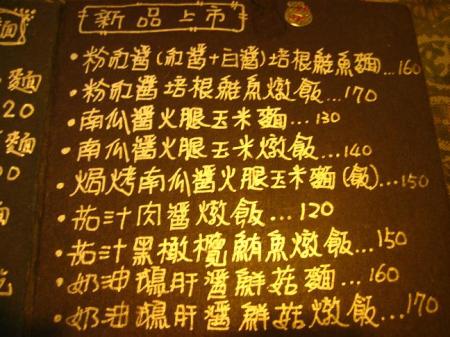 新品上市
麵
20
麵
・粉紅醬(紅醬+白醬)培根鮭魚麵...160
・粉紅醬培根鮭魚燉飯...170
・南瓜醬火腿玉米麵...130
・南瓜醬火腿玉米燉飯...140
・焗烤南瓜醬火腿玉米麵(飯)...150
・茄汁肉醬燉飯...120
・茄汁黑橄欖鮪魚燉飯...150
・奶油鵝肝醬鮮菇麵...160
・奶油鵝肝醬鮮菇燉飯...170